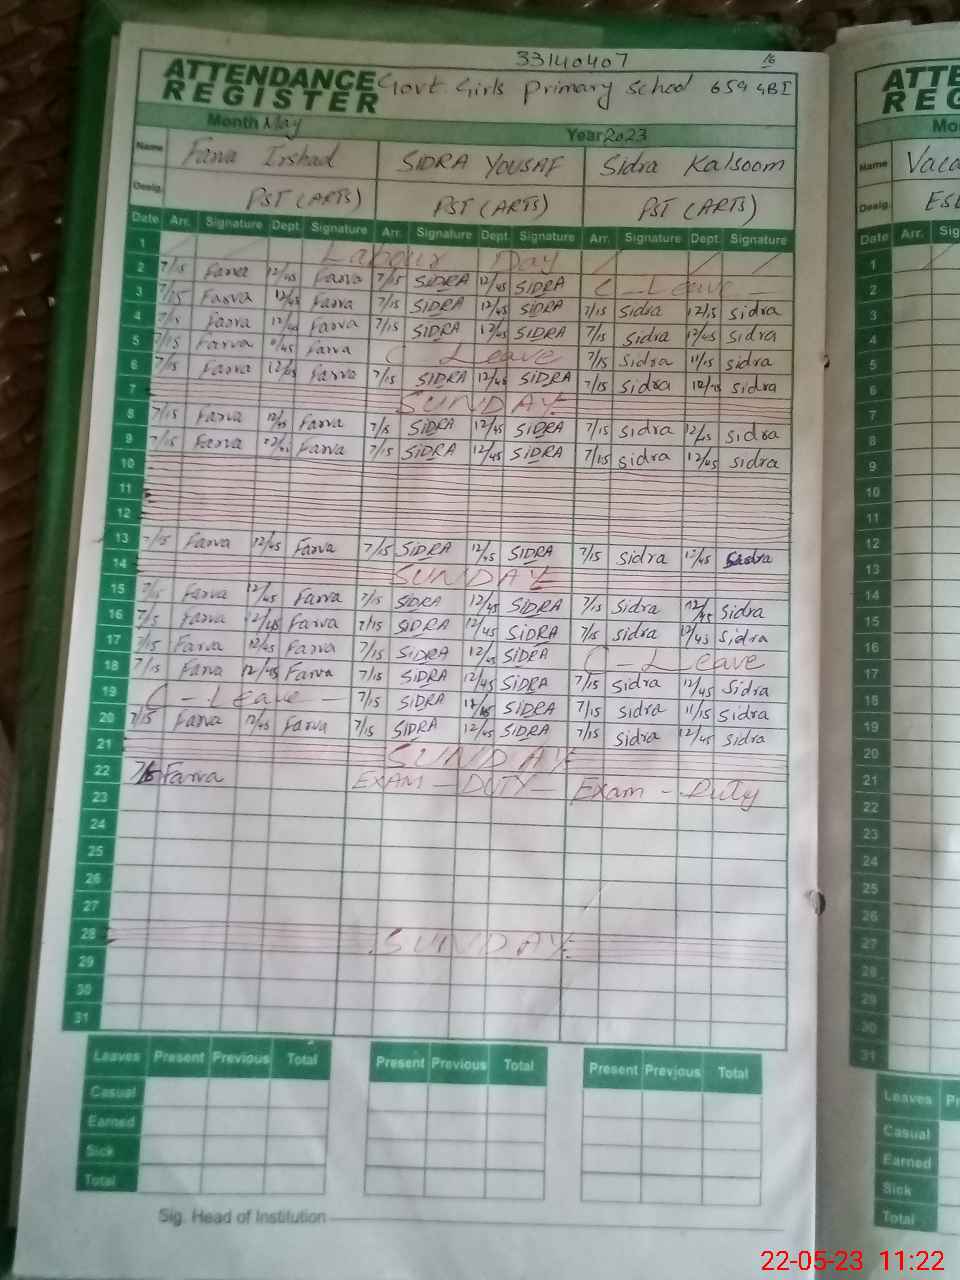 33140407 16
ATTENDANCE REGISTER Govt. Girls Primary School 659 GB I
Month May Year 2023
Name Farva Irshad SIDRA YOUSAF Sidra Kalsoom
Desig. PST (ARTS) PST (ARTS) PST (ARTS)
Date Arr. Signature Dept. Signature Arr. Signature Dept. Signature Arr. Signature Dept. Signature
1 Labour Day
2 7/15 Farva 12/45 Farva 7/15 SIDRA 12/45 SIDRA C - Leave -
3 7/15 Farva 12/45 Farva 7/15 SIDRA 12/45 SIDRA 7/15 Sidra 12/15 Sidra
4 7/15 Farva 12/45 Farva 7/15 SIDRA 12/45 SIDRA 7/15 Sidra 12/45 Sidra
5 7/15 Farva 11/45 Farva C Leave 7/15 Sidra 11/15 Sidra
6 7/15 Farva 12/45 Farva 7/15 SIDRA 12/45 SIDRA 7/15 Sidra 12/45 Sidra
7 SUNDAY
8 7/15 Farva 12/45 Farva 7/15 SIDRA 12/45 SIDRA 7/15 Sidra 12/45 Sidra
9 7/15 Farva 12/45 Farva 7/15 SIDRA 12/45 SIDRA 7/15 Sidra 12/45 Sidra
10
11
12
13 7/15 Farva 12/45 Farva 7/15 SIDRA 12/45 SIDRA 7/15 Sidra 12/45 Sidra
14 SUNDAY
15 7/15 Farva 12/45 Farva 7/15 SIDRA 12/45 SIDRA 7/15 Sidra 12/45 Sidra
16 7/15 Farva 12/45 Farva 7/15 SIDRA 12/45 SIDRA 7/15 Sidra 12/45 Sidra
17 7/15 Farva 12/45 Farva 7/15 SIDRA 12/45 SIDRA C - Leave
18 7/15 Farva 12/45 Farva 7/15 SIDRA 12/45 SIDRA 7/15 Sidra 12/45 Sidra
19 C - Leave - 7/15 SIDRA 12/45 SIDRA 7/15 Sidra 11/15 Sidra
20 7/15 Farva 12/45 Farva 7/15 SIDRA 12/45 SIDRA 7/15 Sidra 12/45 Sidra
21 SUNDAY
22 7/15 Farva EXAM - DUTY - Exam - Duty
23
24
25
26
27
28 SUNDAY
29
30
31
Leaves Present Previous Total Present Previous Total Present Previous Total
Casual
Earned
Sick
Total
Sig. Head of Institution
ATTE
REG
Mo
Name Vaca
Desig. ES
Date Arr. Sig
1
2
3
4
5
6
7
8
9
10
11
12
13
14
15
16
17
18
19
20
21
22
23
24
25
26
27
28
29
30
31
Leaves Pr
Casual
Earned
Sick
Total
22-05-23 11:22